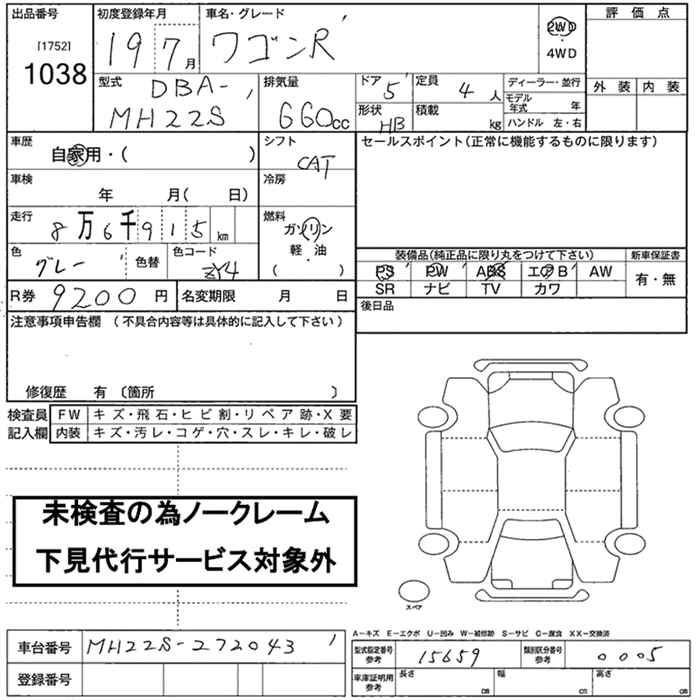 出品番号 初度登録年月 車名・グレード 評価点
[1752] 19 7月 ワゴンR 2WD
1038 4WD
型式 DBA- 排気量 ドア 5 定員 4人 ディーラー・並行 外装 内装
MH22S 660cc 形状 HB 積載 kg モデル年式 年
ハンドル 左・右
車歴 自家用・( ) シフト CAT セールスポイント(正常に機能するものに限ります)
車検 年 月( 日) 冷房
走行 8万6千915km 燃料 ガソリン
軽・油
( )
色 グレー 色替 色コード ZY4
装備品(純正品に限り丸をつけて下さい) 新車保証書
PS PW ABS エアB AW 有・無
SR ナビ TV カワ
R券 9200円 名変期限 月 日 後日品
注意事項申告欄 (不具合内容等は具体的に記入して下さい)
修復歴 有 〔箇所 〕
検査員 FW キズ・飛石・ヒビ割・リペア跡・X要
記入欄 内装 キズ・汚レ・コゲ・穴・スレ・キレ・破レ
未検査の為ノークレーム
下見代行サービス対象外
スペア
A-キズ E-エクボ U-凹み W-補修跡 S-サビ C-腐食 XX-交換済
車台番号 MH22S-272043 型式指定番号 参考 15659 類別区分番号 参考 0005
登録番号 車庫証明用 参考 長さ cm 幅 cm 高さ cm